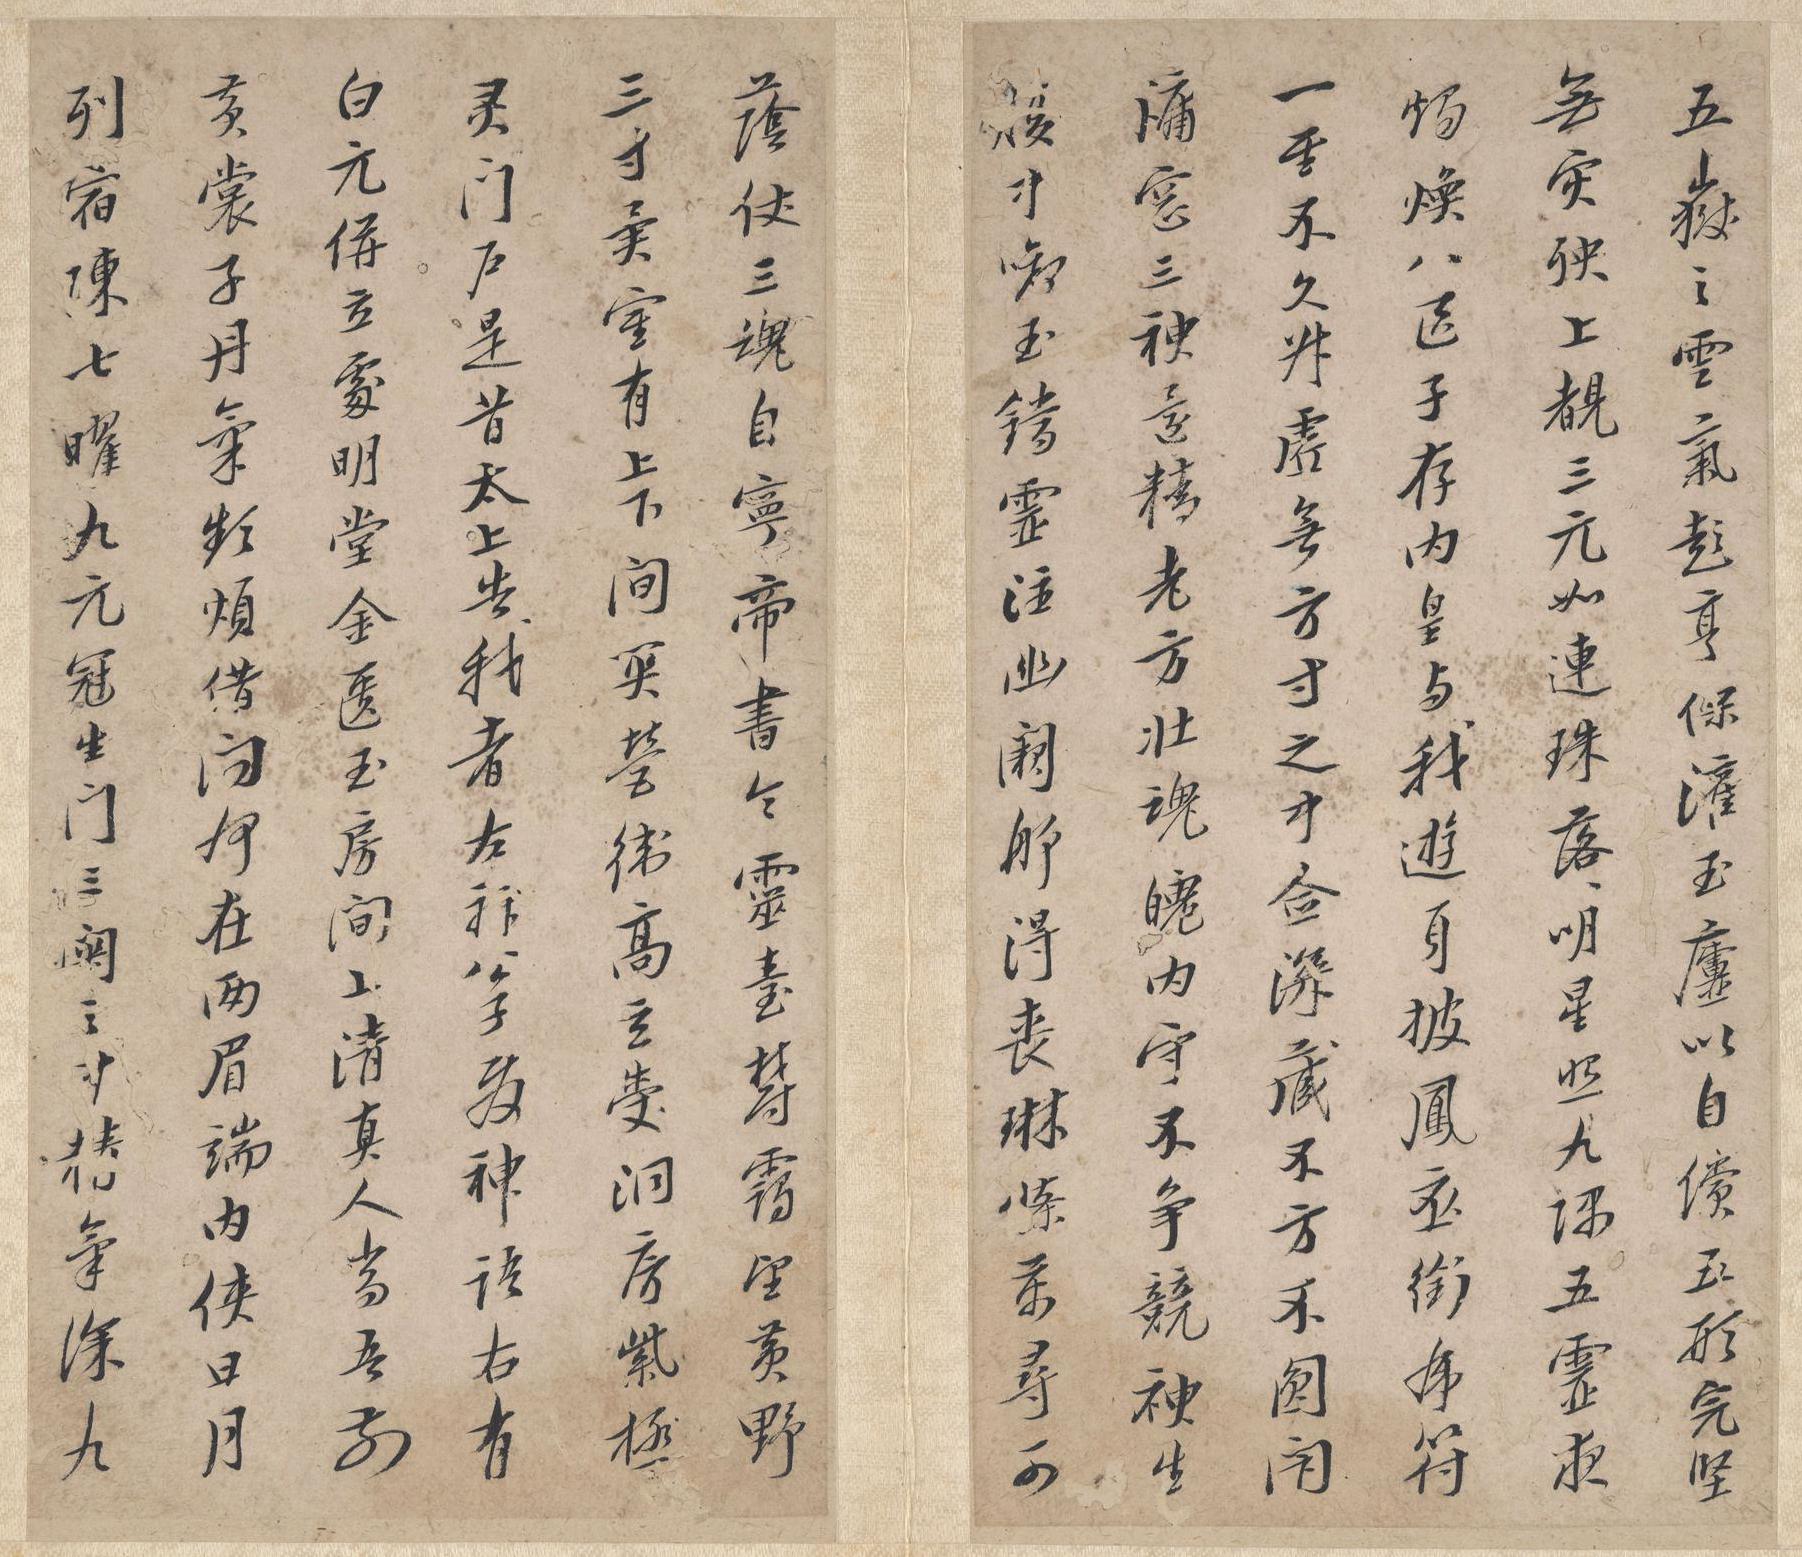 五嶽之雲氣彭亨保灌玉廬以自償五形完堅
無灾殃上覩三元如連珠落々明星照九隅五靈夜
燭煥八區子存內皇与我遊身披鳳衣銜虎符
一至不久昇虛無方寸之中念深藏不方不圓閇
牖窓三神還精老方壯魂魄內守不爭競神生
腹中銜玉鐺靈注幽闕那得喪琳條萬尋可
蔭仗三魂自寧帝書命靈臺鬱靄望黃野
三寸異室有上下間関營衛高玄受洞房紫極
灵门戶是昔太上告我者左神公子發神語右有
白元併立處明堂金匱玉房間上清真人當吾前
黃裳子丹氣頻煩借问何在兩眉端內俠日月
列宿陳七曜九元冠生门三関之中精氣深九